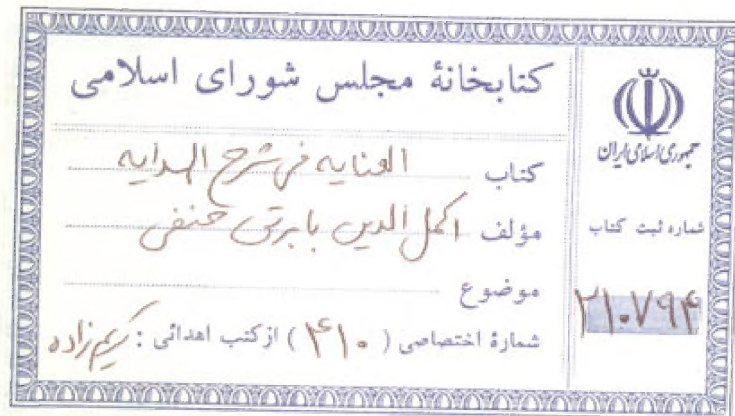 کتابخانهٔ مجلس شورای اسلامی
کتاب العنایه فی شرح الهدایه
مؤلف اکمل الدین بابرتی حنفی
موضوع
شمارهٔ اختصاصی ( ۴۱۰ ) از کتب اهدائی : کریم‌زاده
جمهوری اسلامی ایران
شماره ثبت کتاب
۲۱۰۷۹۴